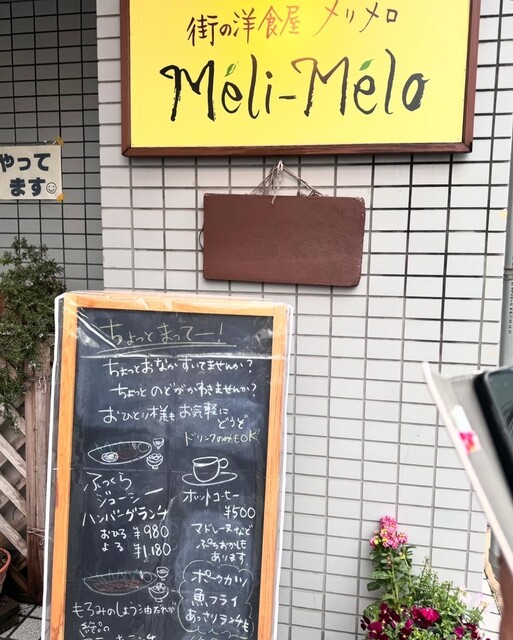 街の洋食屋 メリメロ
Méli-Mélo
やって
ます
ちょっとまってー!
ちょっとおなかすいてませんか?
ちょっとのどがかわきませんか?
おひとり様もお気軽に
どうぞ
ドリンクのみもOK!
ふっくら
ジューシー
ハンバーグランチ
おひる ¥980
よる ¥1,180
もろみのしょう油だれが
絶品の
ホットコーヒー
¥500
マドレーヌなど
ぷちおかしも
あります
ポークカツ
魚フライ
あっさりランチも